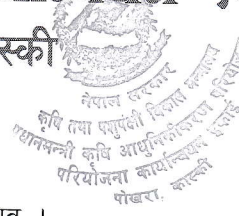 स्की
नेपाल सरकार
कृषि तथा पशुपंक्षी विकास मन्त्रालय
प्रधानमन्त्री कृषि आधुनिकीकरण परियोजना
परियोजना कार्यान्वयन इकाई
पोखरा, कास्की